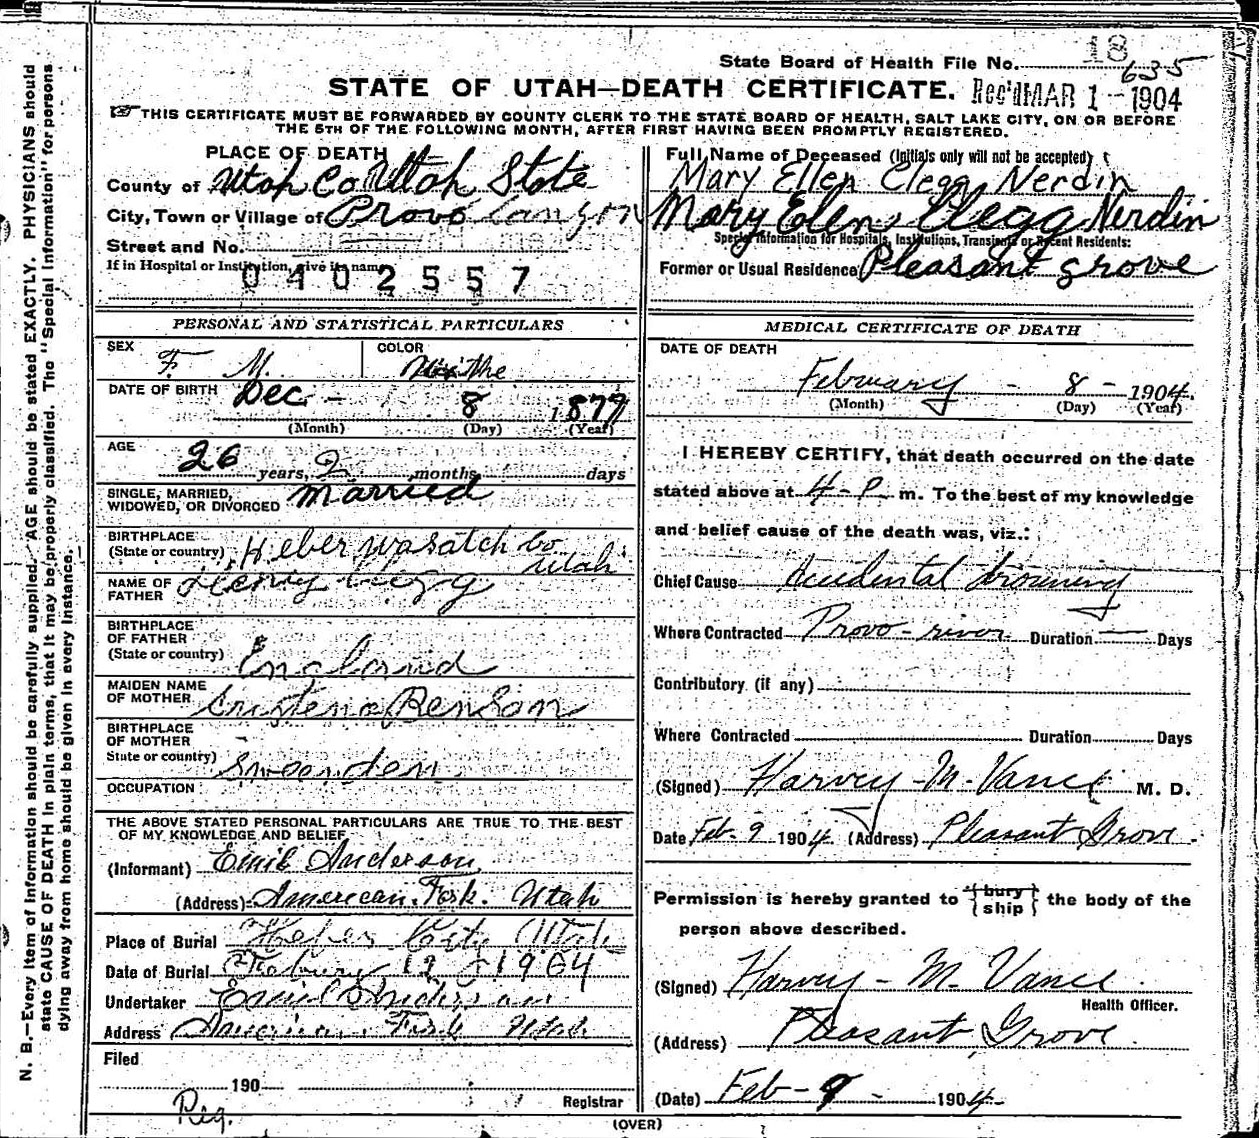 N. B.—Every item of information should be carefully supplied. AGE should be stated EXACTLY. PHYSICIANS should
state CAUSE OF DEATH in plain terms, that it may be properly classified. The "Special Information" for persons
dying away from home should be given in every instance.
18
State Board of Health File No. 635
STATE OF UTAH—DEATH CERTIFICATE. Rec'd MAR 1 - 1904
THIS CERTIFICATE MUST BE FORWARDED BY COUNTY CLERK TO THE STATE BOARD OF HEALTH, SALT LAKE CITY, ON OR BEFORE
THE 5TH OF THE FOLLOWING MONTH, AFTER FIRST HAVING BEEN PROMPTLY REGISTERED.
PLACE OF DEATH
County of Utah Co Utah State
City, Town or Village of Provo Canyon
Street and No.
If in Hospital or Institution, give its name
0402557
PERSONAL AND STATISTICAL PARTICULARS
SEX F. M. COLOR White
DATE OF BIRTH Dec - 8 1877
(Month) (Day) (Year)
AGE 26 years, 2 months, days
SINGLE, MARRIED,
WIDOWED, OR DIVORCED Married
BIRTHPLACE
(State or country) Heber wasatch co
utah
NAME OF
FATHER Henry Clegg
BIRTHPLACE
OF FATHER
(State or country) England
MAIDEN NAME
OF MOTHER Cristena Benson
BIRTHPLACE
OF MOTHER
State or country) Sweenden
OCCUPATION
THE ABOVE STATED PERSONAL PARTICULARS ARE TRUE TO THE BEST
OF MY KNOWLEDGE AND BELIEF
(Informant) Emil Anderson
(Address) American Fork. Utah
Place of Burial Heber City Utah
Date of Burial 12 1904
Undertaker Emil Anderson
Address American Fork Utah
Filed
190
Reg. Registrar
Full Name of Deceased (Initials only will not be accepted)
Mary Ellen Clegg Nerdin
Mary Elen Clegg Nerdin
Special Information for Hospitals, Institutions, Transients or Recent Residents:
Former or Usual Residence Pleasant grove
MEDICAL CERTIFICATE OF DEATH
DATE OF DEATH
February - 8 - 1904.
(Month) (Day) (Year)
I HEREBY CERTIFY, that death occurred on the date
stated above at 4-P m. To the best of my knowledge
and belief cause of the death was, viz.:
Chief Cause Accidental drowning
Where Contracted Provo-river Duration — Days
Contributory (if any)
Where Contracted Duration Days
(Signed) Harvey-M-Vance M. D.
Date Feb. 9 1904. (Address) Pleasant Grove
Permission is hereby granted to {bury ship} the body of the
person above described.
(Signed) Harvey-M. Vance
Health Officer.
(Address) Pleasant Grove
(Date) Feb-9- 1904.
(OVER)